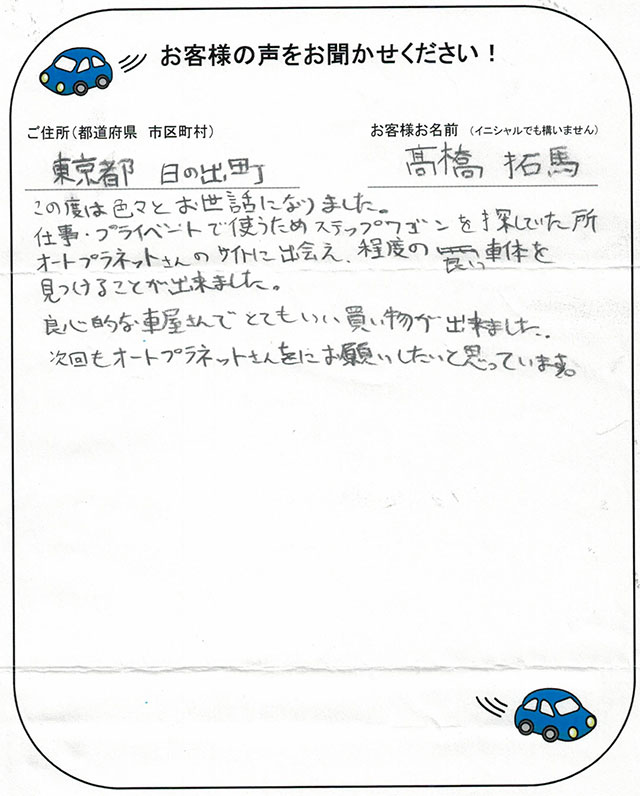 お客様の声をお聞かせください！
ご住所(都道府県 市区町村)
お客様お名前 (イニシャルでも構いません)
東京都 日の出町
髙橋 拓馬
この度は色々とお世話になりました。
仕事・プライベントで使うためステップワゴンを探していた所
オートプラネットさんのサイトに出会え、程度の良い車体を
見つけることが出来ました。
良心的な車屋さんでとてもいい買い物が出来ました。
次回もオートプラネットさんをにお願いしたいと思っています。